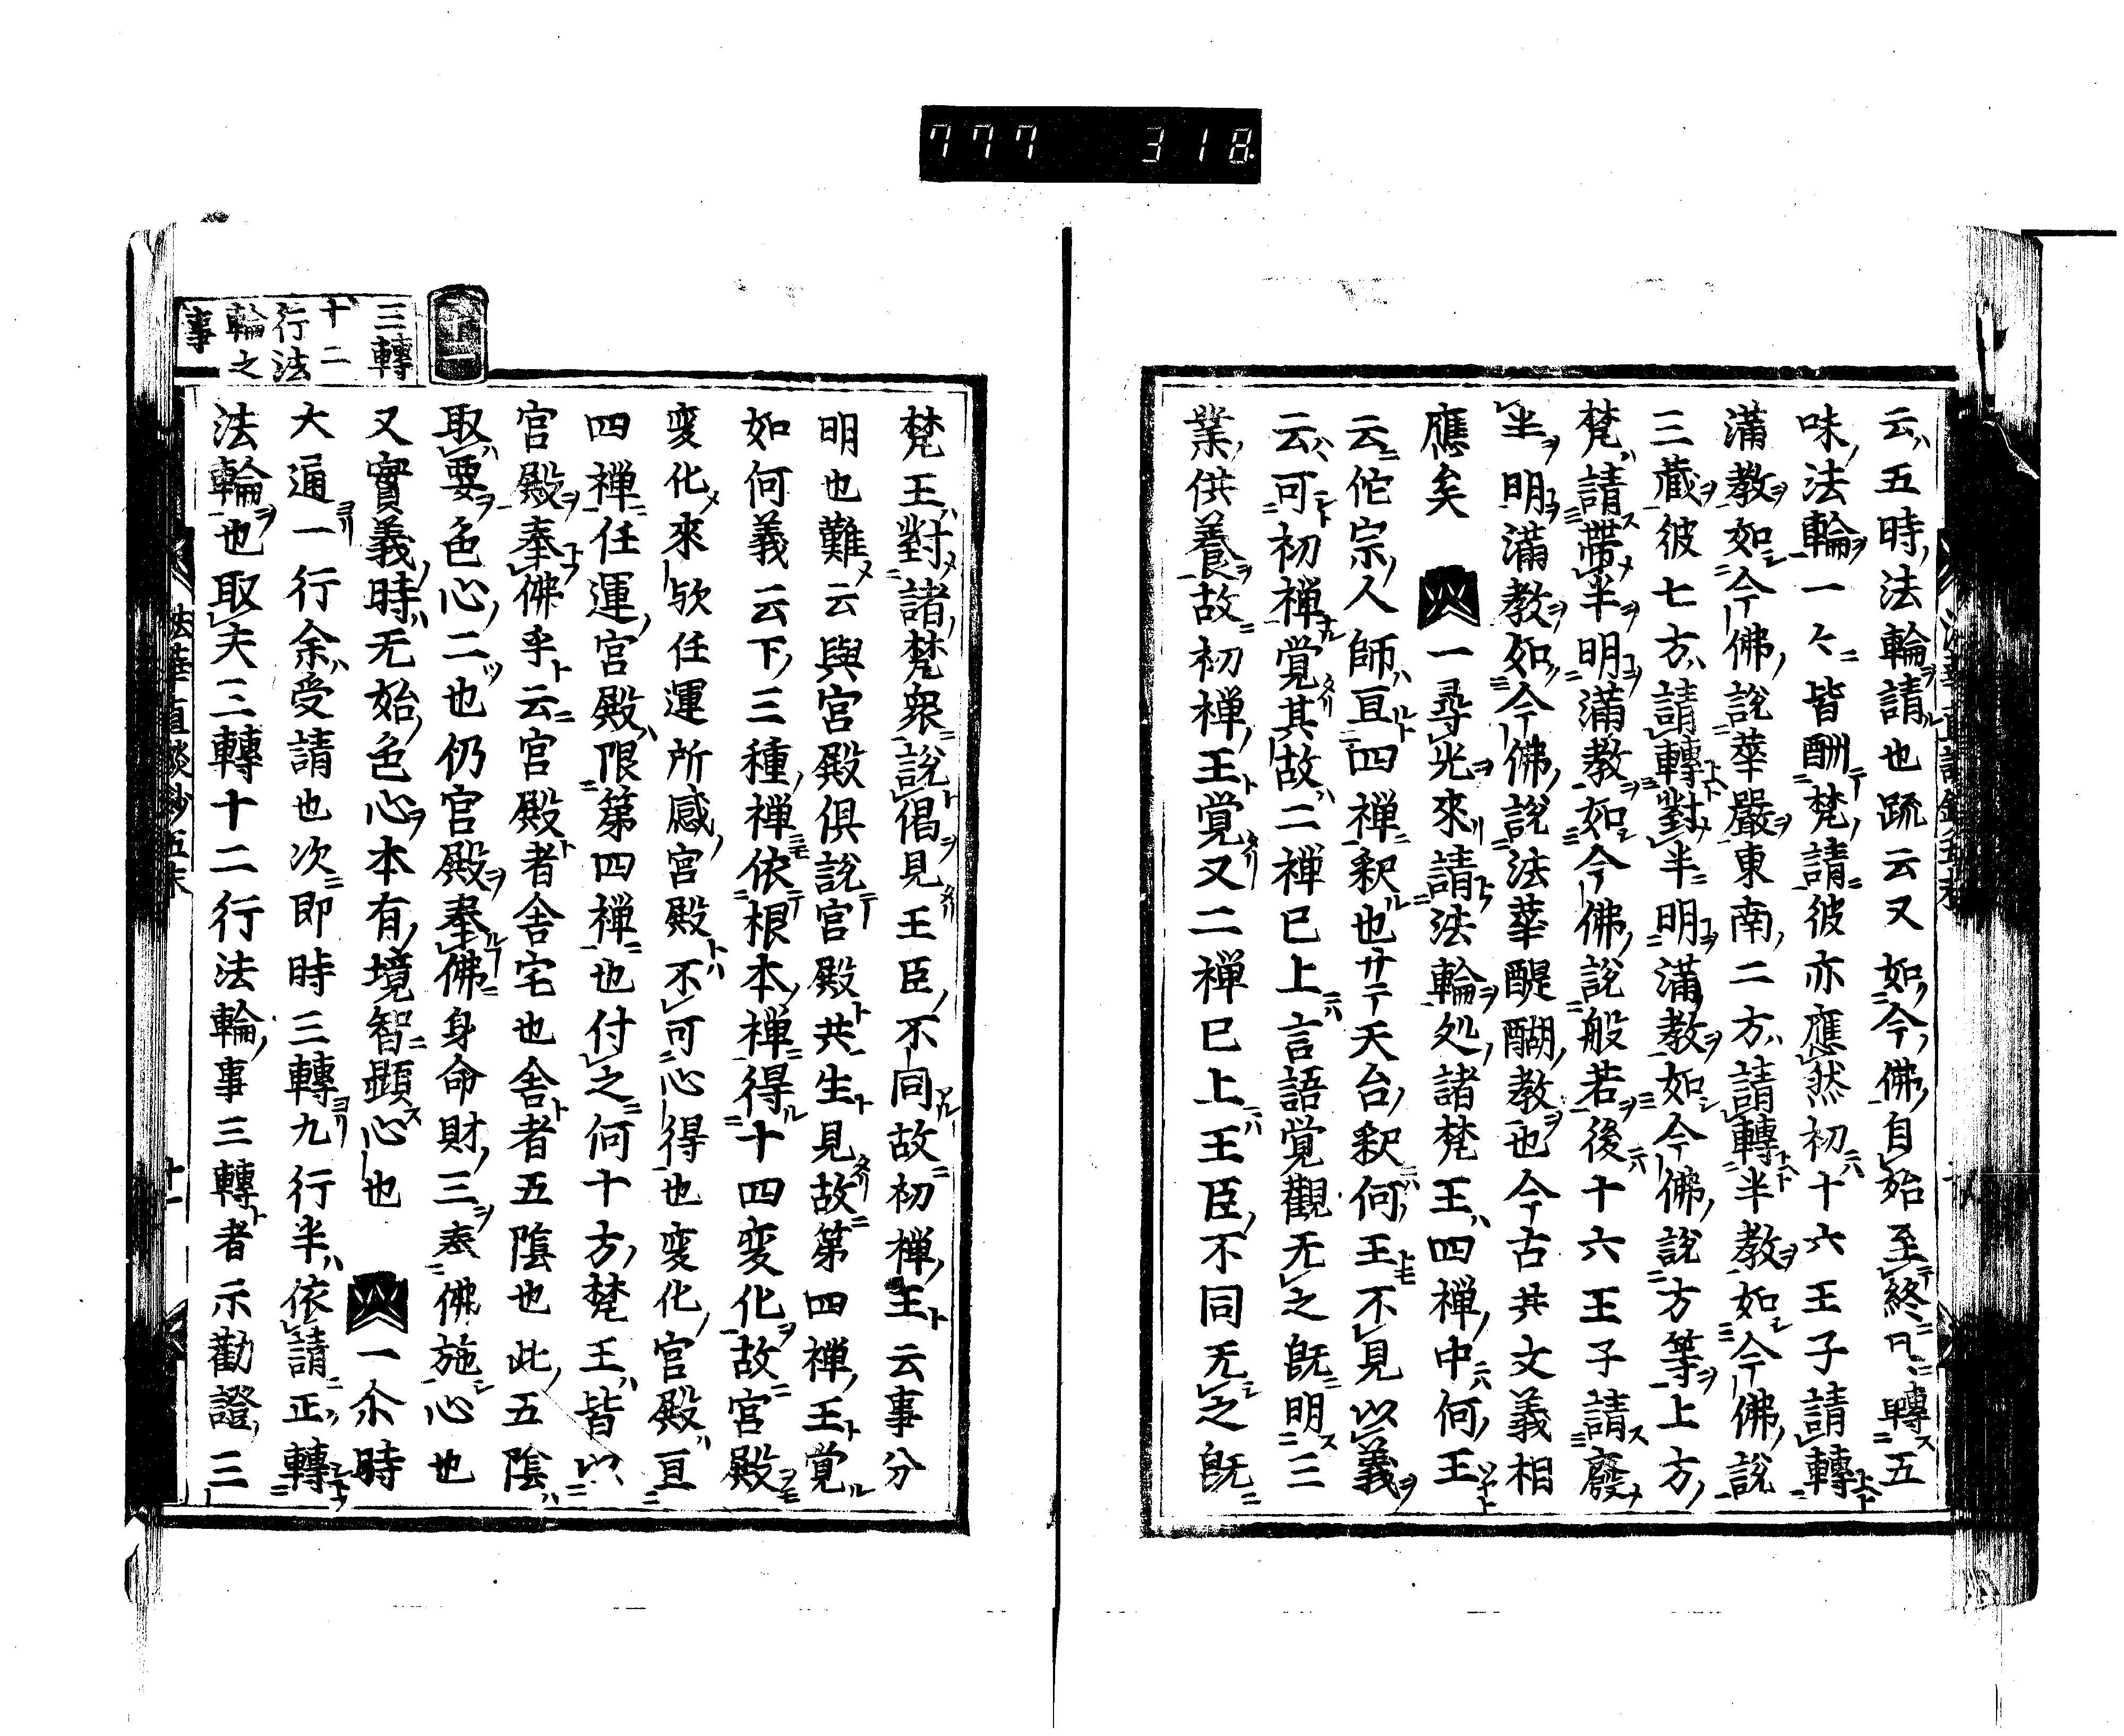 777 318
云五時法輪請也疏云又如今佛自始至終円轉五
味法輪一々皆酬梵請彼亦應然初十六王子請轉
滿教如今佛說華嚴東南二方請轉半教如今佛說
三藏彼七方請轉對半明滿教如今佛說方等上方
梵請帶半明滿教如今佛說般若後十六王子請廢
半明滿教如今佛說法華醍醐教也今古共文義相
應矣 一尋光來請法輪処諸梵王四禅中何王
云佗宗人師亘四禅釈也サテ天台釈何王不見以義
云可初禅覚其故二禅已上言語覚觀无之既明三
業供養故初禅王覚又二禅已上王臣不同无之既
梵王對諸梵衆說偈見王臣不同故初禅王云事分
明也難云與宮殿俱說宮殿共生見故第四禅王覚
如何義云下三種禅依根本禅得十四変化故宮殿
変化來欤任運所感宮殿不可心得也変化宮殿亘
四禅任運宮殿限第四禅也付之何十方梵王皆以
宮殿奉佛乎云宮殿者舍宅也舍者五陰也此五陰
取要色心二也仍宮殿奉佛身命財三奉佛施心也
又實義時无始色心本有境智顯心也 一尒時
大通一行余受請也次即時三轉九行半依請正轉
法輪也取夫三轉十二行法輪事三轉者示勸證三
十二
三轉
十二
行法
輪之
事
法華直談鈔五末
十一